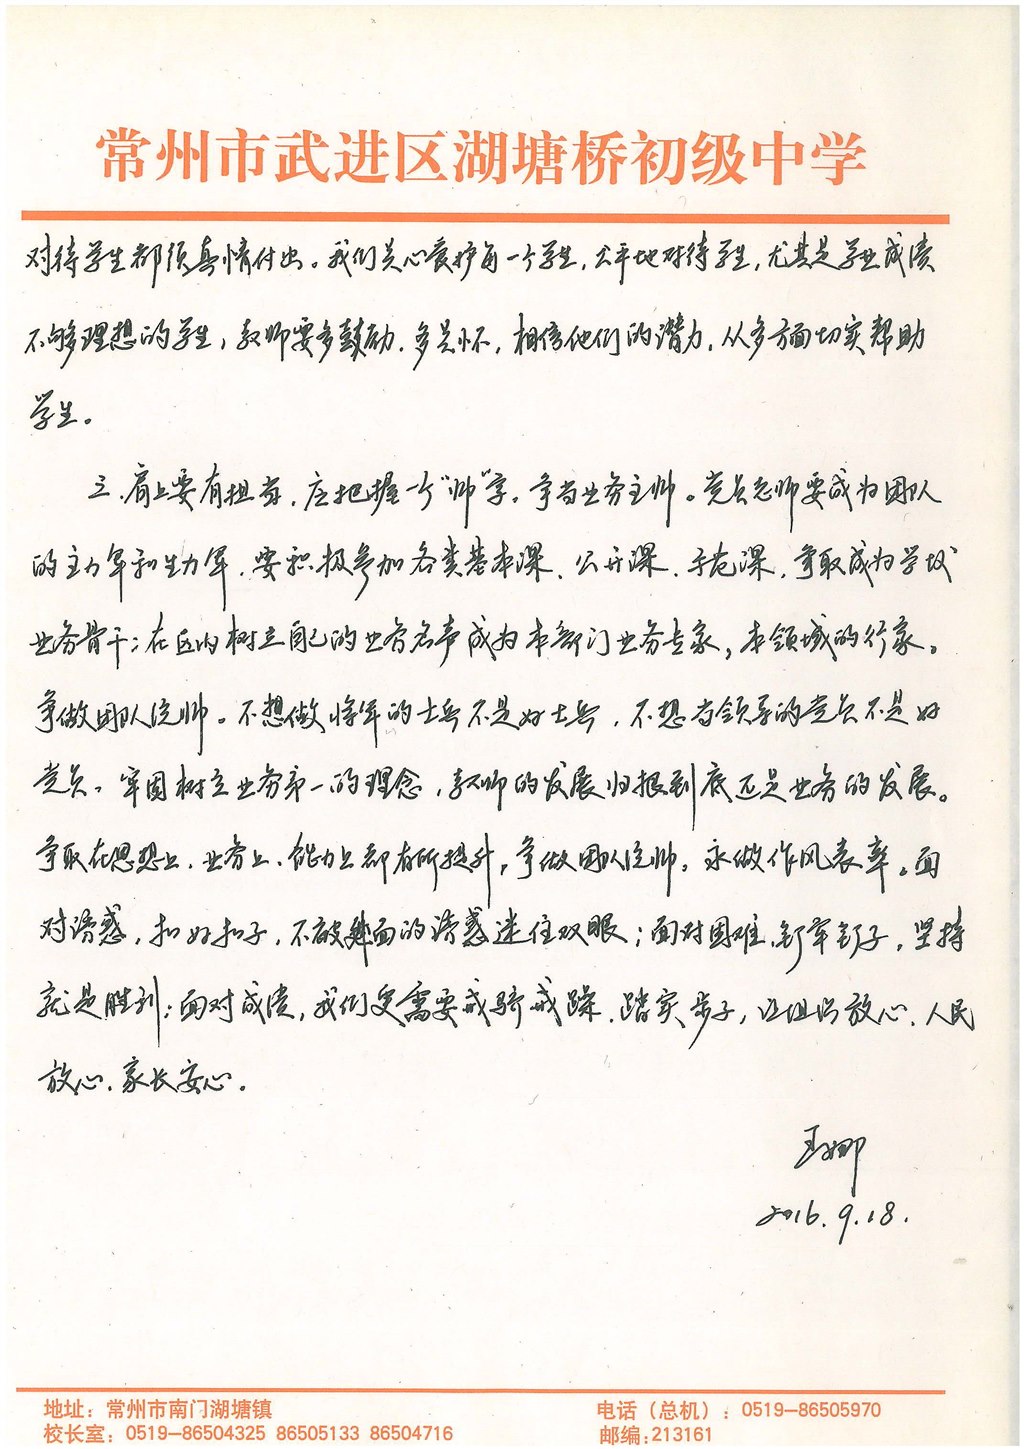 常州市武进区湖塘桥初级中学
对待学生都须真情付出。我们关心爱护每一个学生，公平地对待学生，尤其是学业成绩
不够理想的学生，教师要多鼓励、多关怀，相信他们的潜力，从多方面切实帮助
学生。
三、肩上要有担当，应把握一个“帅”字。争当业务主帅。党员教师要成为团队
的主力军和生力军，要积极参加各类基本课、公开课、示范课，争取成为学校
业务骨干；在区内树立自己的业务名声成为本部门业务专家，本领域的行家。
争做团队统帅。不想做将军的士兵不是好士兵，不想当领导的党员不是好
党员。牢固树立业务第一的理念，教师的发展归根到底还是业务的发展。
争取在思想上、业务上、能力上都有所提升，争做团队统帅。永做作风表率。面
对诱惑，扣好扣子，不被外面的诱惑迷住双眼；面对困难，钉牢钉子，坚持
就是胜利；面对成绩，我们更需要戒骄戒躁、踏实步子，让组织放心、人民
放心、家长安心。
王娜
2016.9.18.
地址：常州市南门湖塘镇
电话（总机）：0519—86505970
校长室：0519—86504325 86505133 86504716
邮编：213161